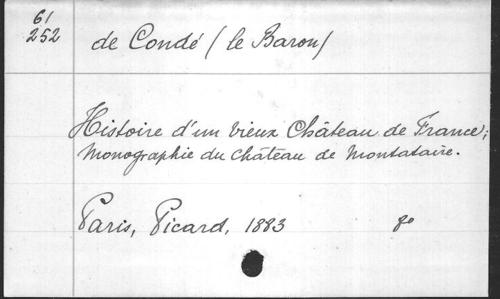 61
252
de Condé (le Baron)
Histoire d'un vieux Château de France;
Monographie du Château de Montataire.
Paris, Picard, 1883